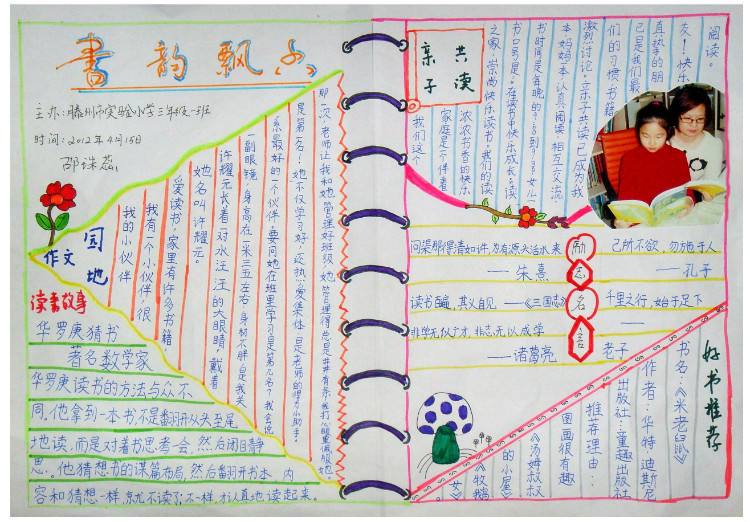 书韵飘香
主办:滕州市实验小学三年级一班
时间:2012年4月15日
邵诛蕊
作文
园地
我的小伙伴
我有一个小伙伴,很
爱读书,家里有许多书籍,
她名叫许耀元。
许耀元长着一对水汪汪的大眼睛,戴着
一副眼镜,身高在一米三五左右,身材不胖,是我关
系最好的一个伙伴,要问她在班里学习是第几名?我会说
是第一名!她不仅学习好,还热爱集体,是老师的得力小助手。
那一次,老师让我和她管理好班级,她管理得总是井井有条,我打心眼里佩服她
读书故事
华罗庚猜书
著名数学家
华罗庚读书的方法与众不
同,他拿到一本书,不是翻开从头至尾
地读,而是对着书思考一会,然后闭目静
思。他猜想书的谋篇布局,然后翻开书本,内
容和猜想一样,就不读了;不一样,才认真地读起来。
亲子
共读
我们这个
家庭是个伴着
浓浓书香的快乐
之家,崇尚快乐读书。我们的读
书口号是:在读书中快乐成长;读
书时间是每晚的
本,妈妈一本,认真阅读,相互交流,
激烈讨论。亲子共读已成为我
们的习惯,书籍
已是我们最
真挚的朋
友!快乐
阅读。
励志名言
问渠那得清如许,为有源头活水来
——朱熹
己所不欲,勿施于人
——孔子
读书百遍,其义自见——《三国志》
千里之行,始于足下
——老子
非学无以广才,非志无以成学
——诸葛亮
好书推荐
书名:《米老鼠》
作者:华特·迪斯尼
出版社:童趣出版社
推荐理由:
图画很有趣
《汤姆叔叔
的小屋》
《牧鹅
女》